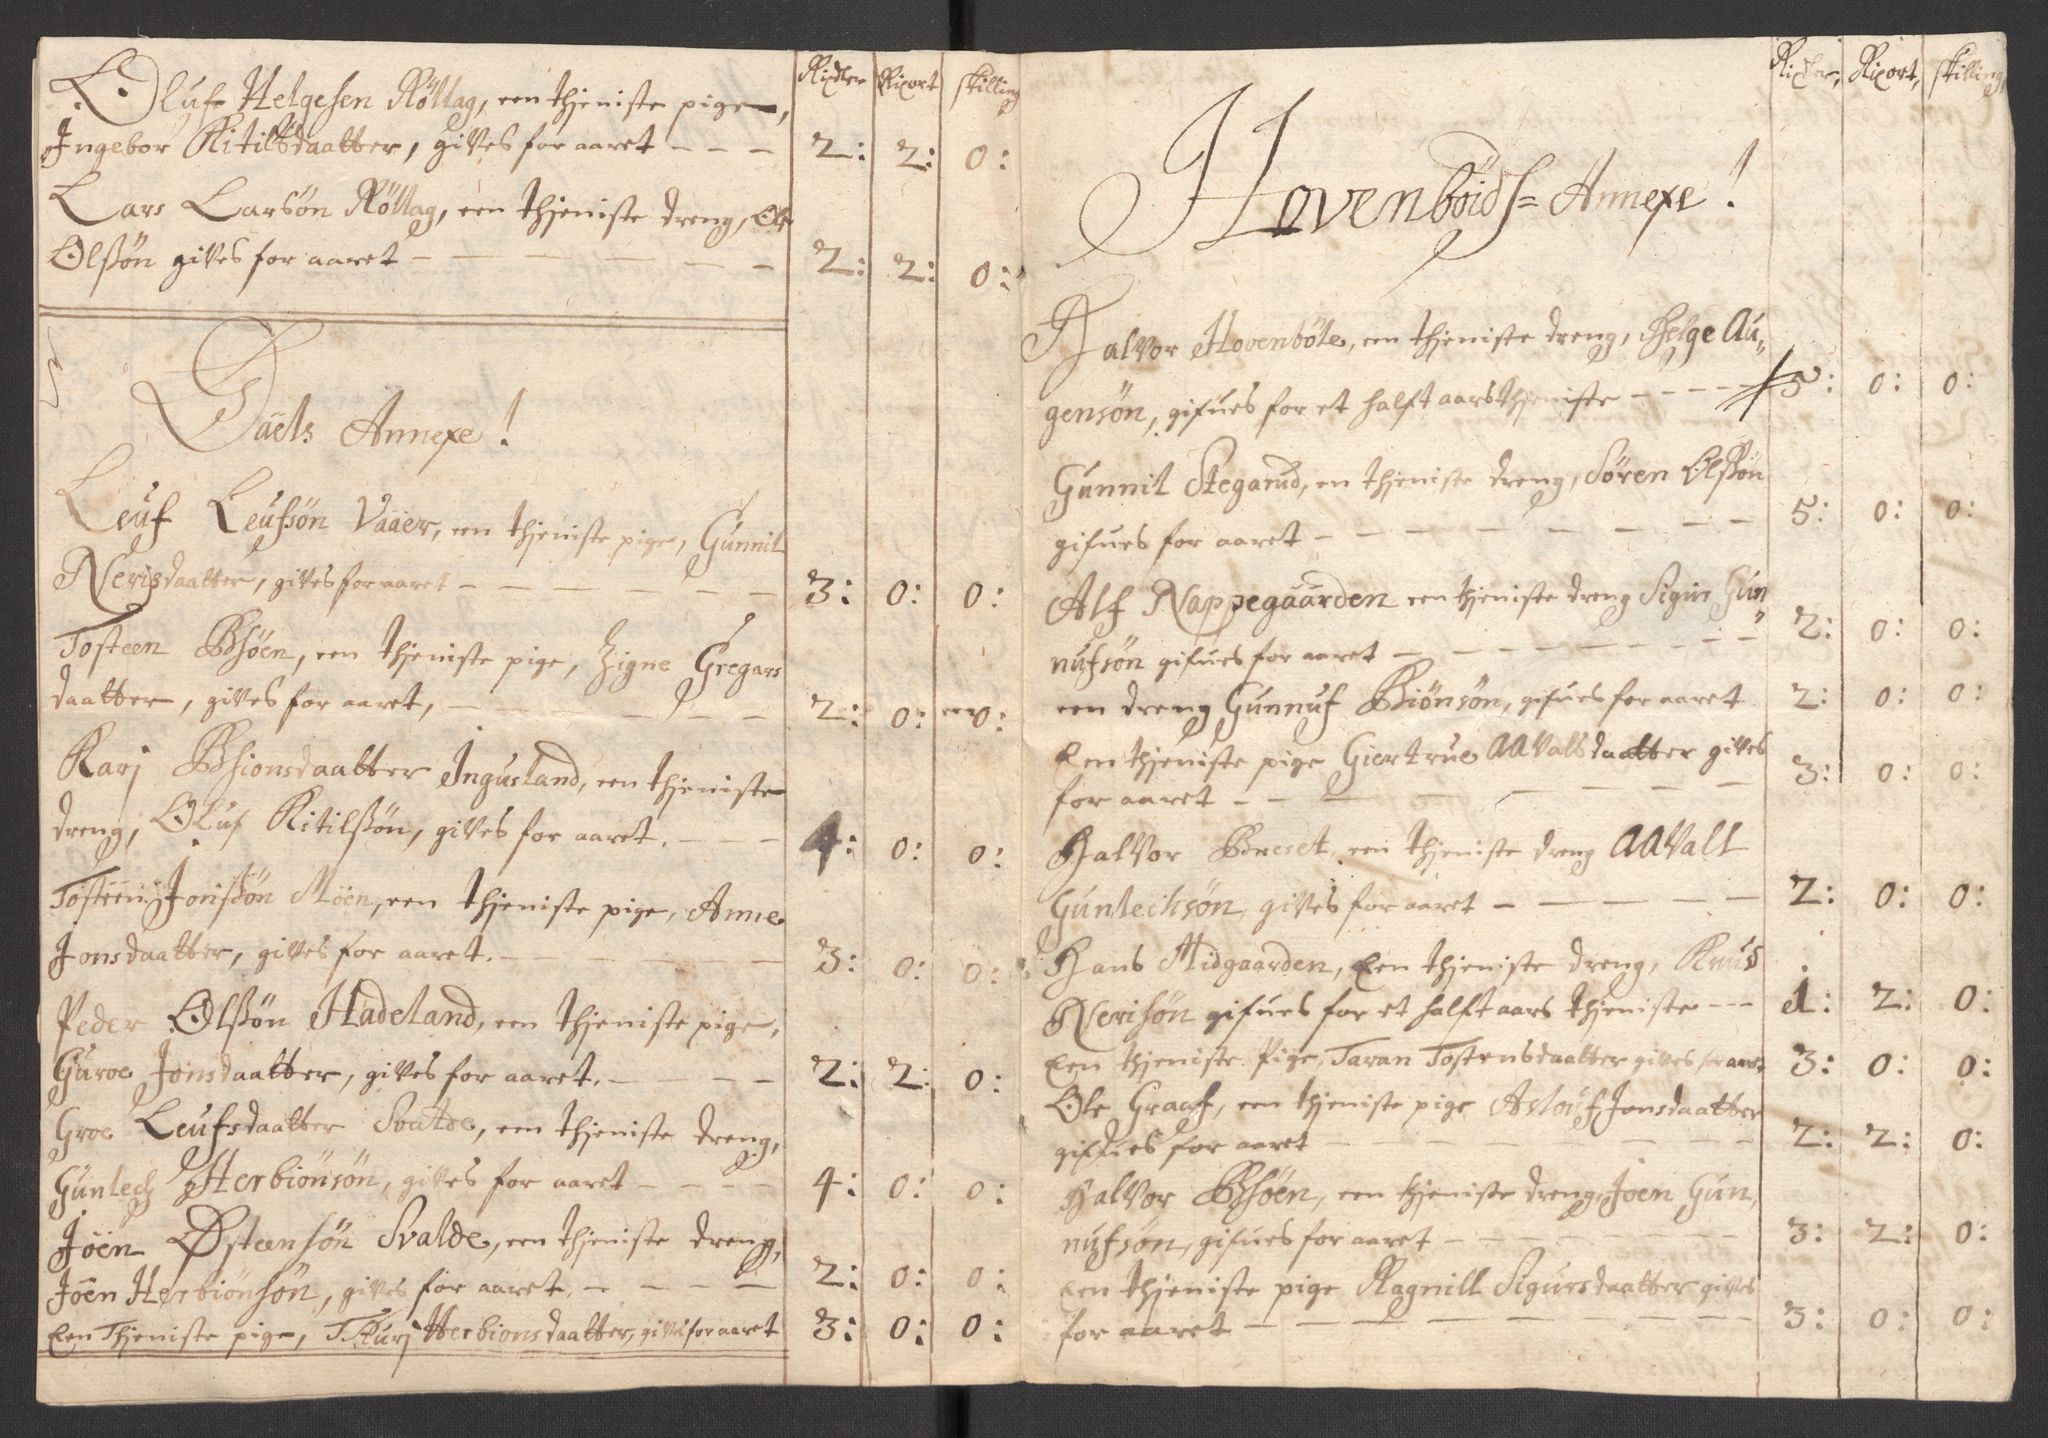 Rixdler Rixort skilling
Oluf Helgesen Röllag, een thjeniste pige,
Ingebor Kitilsdaatter, gives for aaret - - - 2: 2: 0:
Lars Larsön Röllag, een thjeniste dreng, Ole
Olssön gives for aaret - - - - - - 2: 2: 0:
Daels Annexe!
Leuf Leufsön Vaaer, een thjeniste pige, Gunnil
Nerisdaatter, gives for aaret - - - - - - 3: 0: 0:
Tosteen Bhöen, een thjeniste pige, Zigne Gregars
daatter, gives for aaret, - - - - - - 2: 0: 0:
Karj Bhionsdaatter Ingusland, een thjeniste
dreng, Oluf Kitilssön, gives for aaret. - - - 4: 0: 0:
Tosteen Jonssön Möen, een thjeniste pige, Anne
Jonsdaatter, gives for aaret. - - - - - 3: 0: 0:
Peder Olssön Hadeland, een thjeniste pige,
Guroe Jonsdaatter, gives for aaret. - - - - 2: 2: 0:
Groe Leufsdaatter Svalde, een thjeniste dreng,
Gunlech Herbiönsön, gives for aaret - - - - 4: 0: 0:
Joen Østeensön Svalde, een thjeniste dreng,
Joen Herbiönsön, gives for aaret. - - - - 2: 0: 0:
Een Thjeniste pige, Thurj Herbionsdaatter, gives for aaret 3: 0: 0:
Rixdler, Rixort, skilling,
Hovenböids= Annexe!
Halvor Hovenböle, een thjeniste dreng, Helge Au,,
gensön, gifues for et halft aars thjeniste - - - - 5: 0: 0:
Gunnil Stegarud, en thjeniste dreng, Sören Olssön
gifues for aaret - - - - - - - - 5: 0: 0:
Alf Nappegaarden een thjeniste dreng Sigur Gun,,
nufsön gifues for aaret - - - - - - - - 2: 0: 0:
een dreng Gunnuf Biönsön, gifues for aaret 2: 0: 0:
Een thjeniste pige Giertrue AAvalsdaatter gives
for aaret - - - - - - - - 3: 0: 0:
Halvor Breset, een thjeniste dreng AAvall
Gunlechsön, gives for aaret - - - - - 2: 0: 0:
Hans Midgaarden, Een thjeniste dreng, Knud
Nerisön gifues for et halft aars thjeniste - - - 1: 2: 0:
Een thjeniste Pige, Taran Tostensdaatter gives for aaret 3: 0: 0:
Ole Graaf, een thjeniste pige Aslouf Jonsdaatter
gifues for aaret - - - - - - - 2: 2: 0:
Halvor Bhöen, een thjeniste dreng, Joen Gun,
nufsön, gifues for aaret - - - - - - - 3: 2: 0:
Een thjeniste pige Ragnill Sigursdaatter gives
for aaret - - - - - - - - - 3: 0: 0: